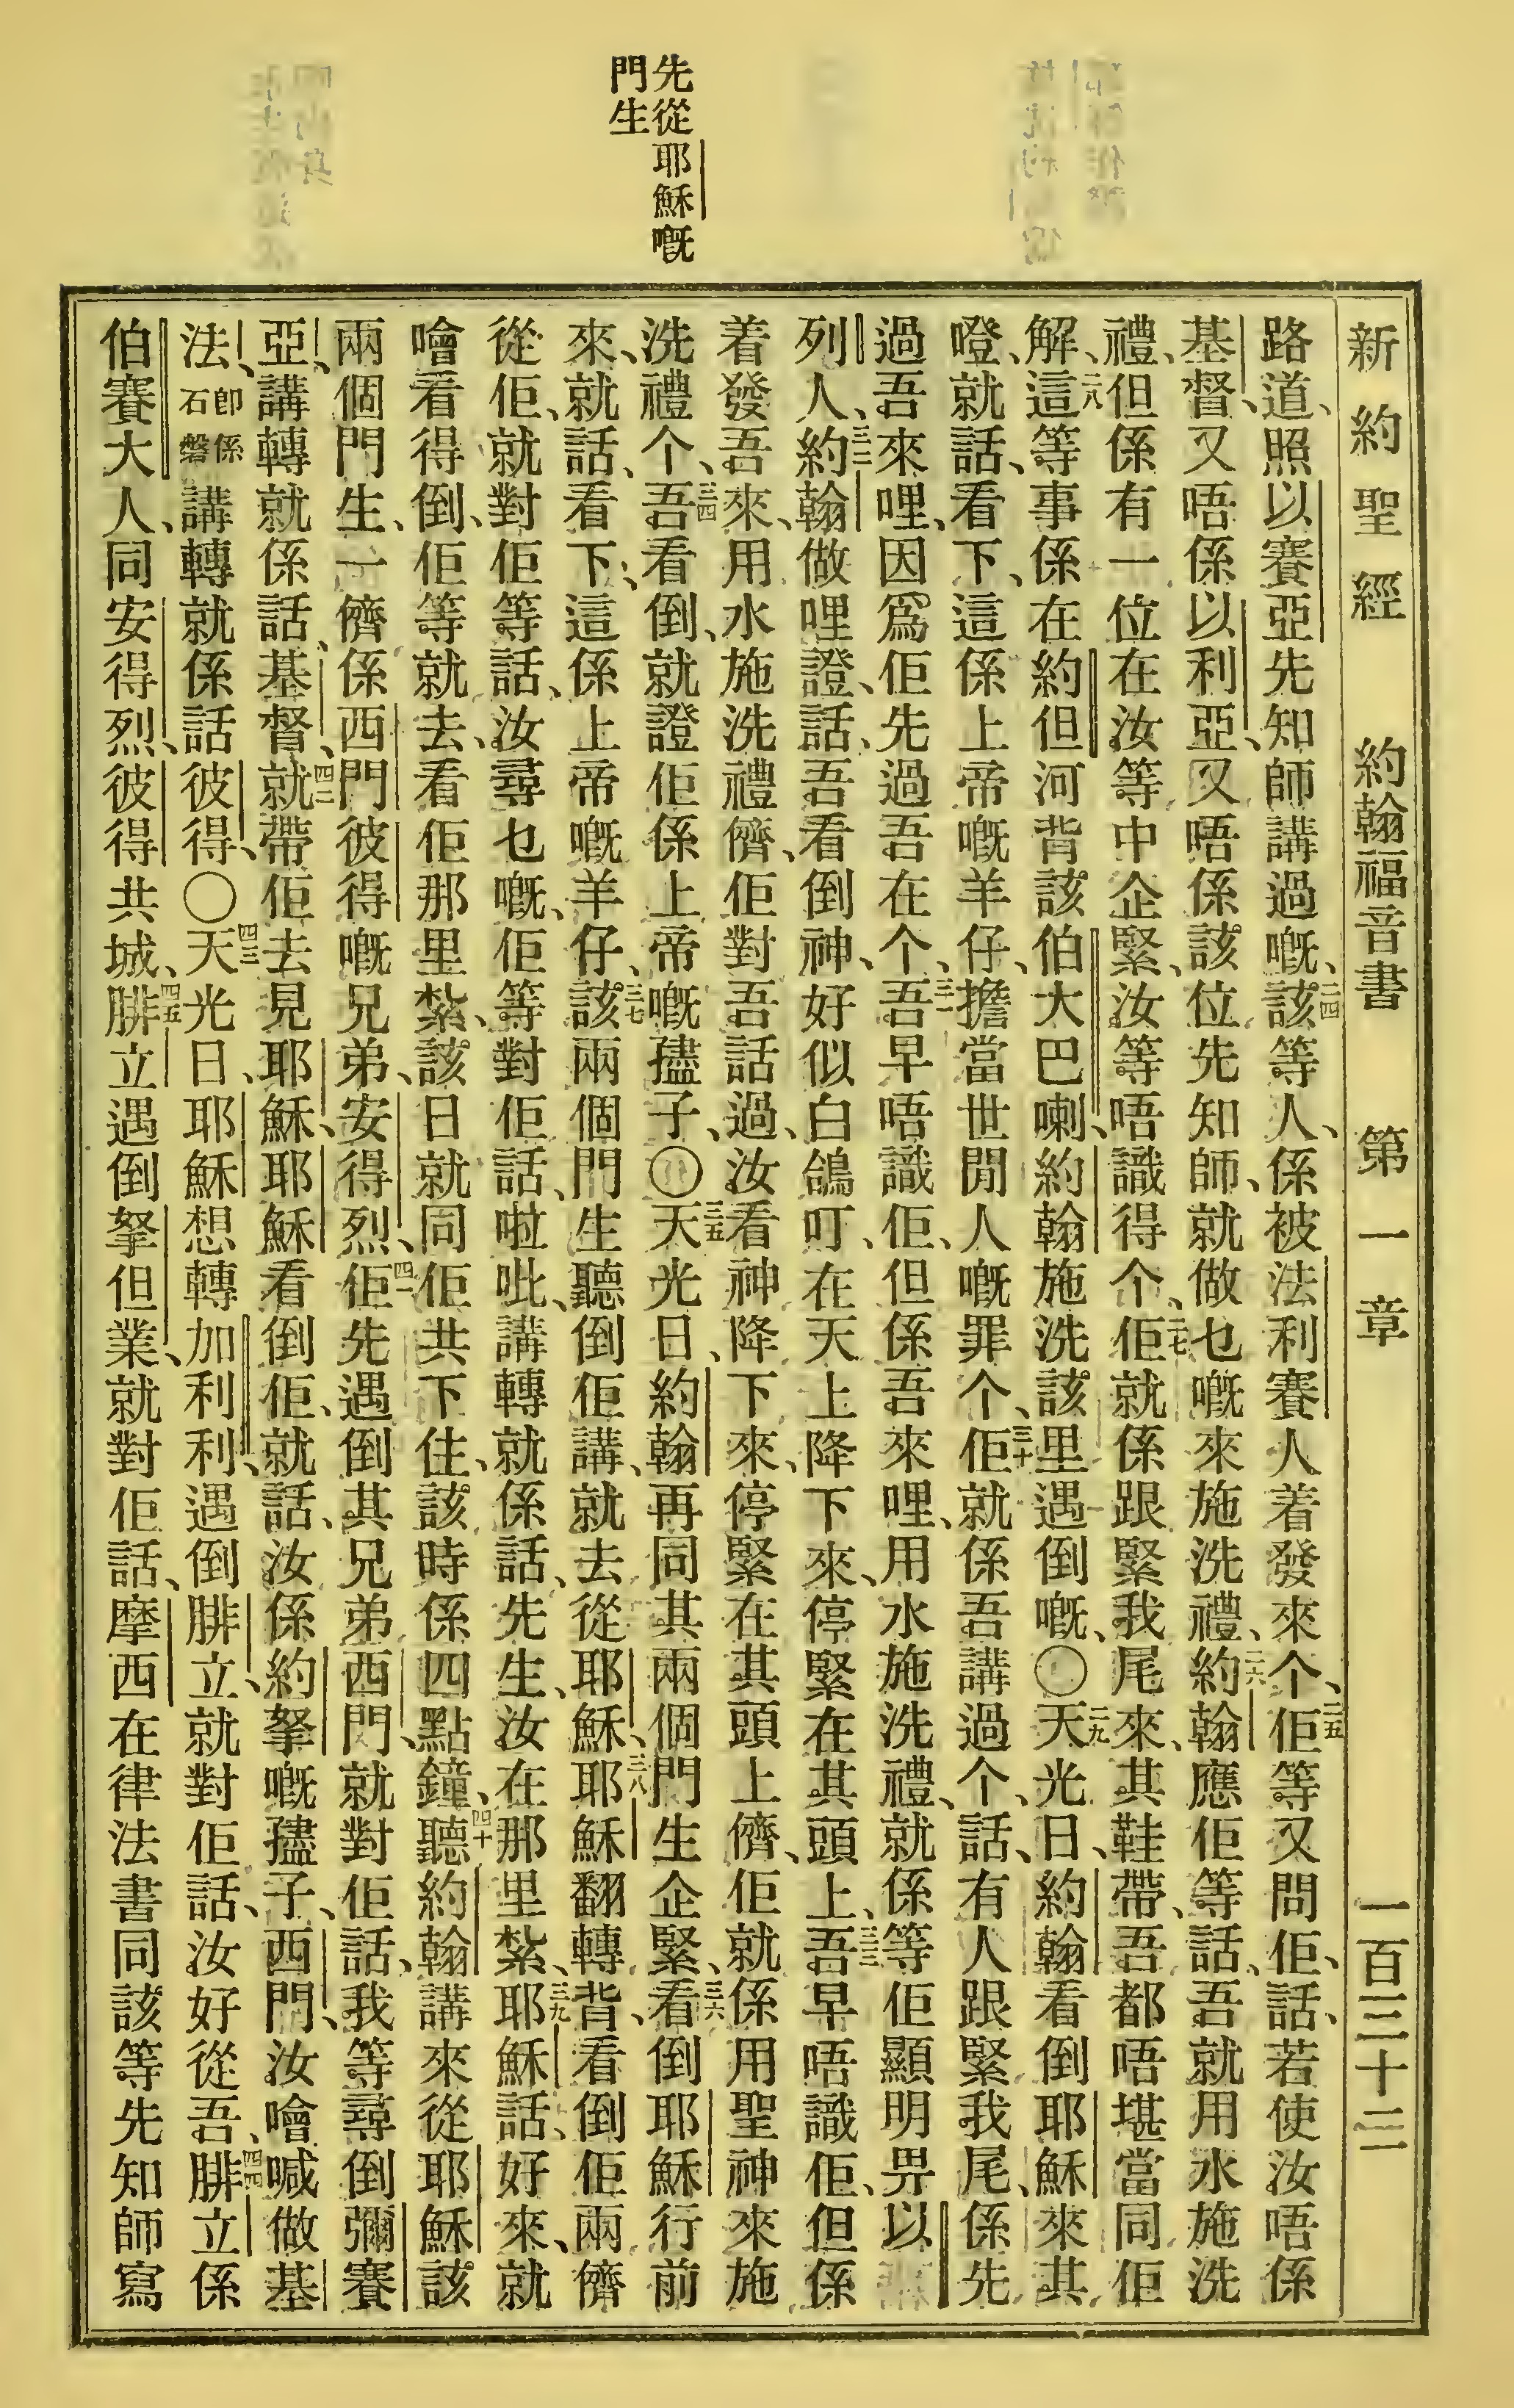 新約聖經 約翰福音書 第一章 一百三十二
先從耶穌嘅
門生
路道、照以賽亞先知師講過嘅、二四該等人、係被法利賽人着發來个、二五佢等又問佢、話、若使汝唔係
基督、又唔係以利亞、又唔係該位先知師、就做乜嘅來施洗禮、二六約翰應佢等話、吾就用水施洗
禮、但係有一位在汝等中企緊、汝等唔識得个、二七佢就係跟緊我尾來、其鞋帶、吾都唔堪當同佢
解、二八這等事係在約但河背該伯大巴喇、約翰施洗該里遇倒嘅、〇二九天光日、約翰看倒耶穌來其
嶝、就話、看下、這係上帝嘅羊仔、擔當世間人嘅罪个、三十佢就係吾講過个、話、有人跟緊我尾、係先
過吾來哩、因爲佢先過吾在个、三一吾早唔識佢、但係吾來哩、用水施洗禮、就係等佢顯明畀以
列人、三二約翰做哩證、話、吾看倒神、好似白鴿叮、在天上降下來、停緊在其頭上、三三吾早唔識佢、但係
着發吾來、用水施洗禮儕、佢對吾話過、汝看神降下來、停緊在其頭上儕、佢就係用聖神來施
洗禮个、三四吾看倒、就證佢係上帝嘅孻子、〇三五天光日、約翰再同其兩個門生企緊、三六看倒耶穌行前
來、就話、看下、這係上帝嘅羊仔、三七該兩個門生聽倒佢講、就去從耶穌、三八耶穌翻轉背、看倒佢兩儕
從佢、就對佢等話、汝尋乜嘅、佢等對佢話、啦吡、講轉就係話、先生、汝在那里紮、三九耶穌話、好來、就
噲看得倒、佢等就去、看佢那里紮、該日就同佢共下住、該時係四點鐘、四十聽約翰講來從耶穌該
兩個門生、一儕係西門彼得嘅兄弟、安得烈、四一佢先遇倒其兄弟西門、就對佢話、我等尋倒彌賽
亞、講轉就係話、基督、四二就帶佢去見耶穌、耶穌看倒佢、就話、汝係約拏嘅孻子、西門、汝噲喊做基
法、卽係石磐講轉就係話彼得、〇四三天光日、耶穌想轉加利利、遇倒腓立、就對佢話、汝好從吾、四四腓立係
伯賽大人、同安得烈、彼得共城、四五腓立遇倒拏但業、就對佢話、摩西在律法書同該等先知師寫